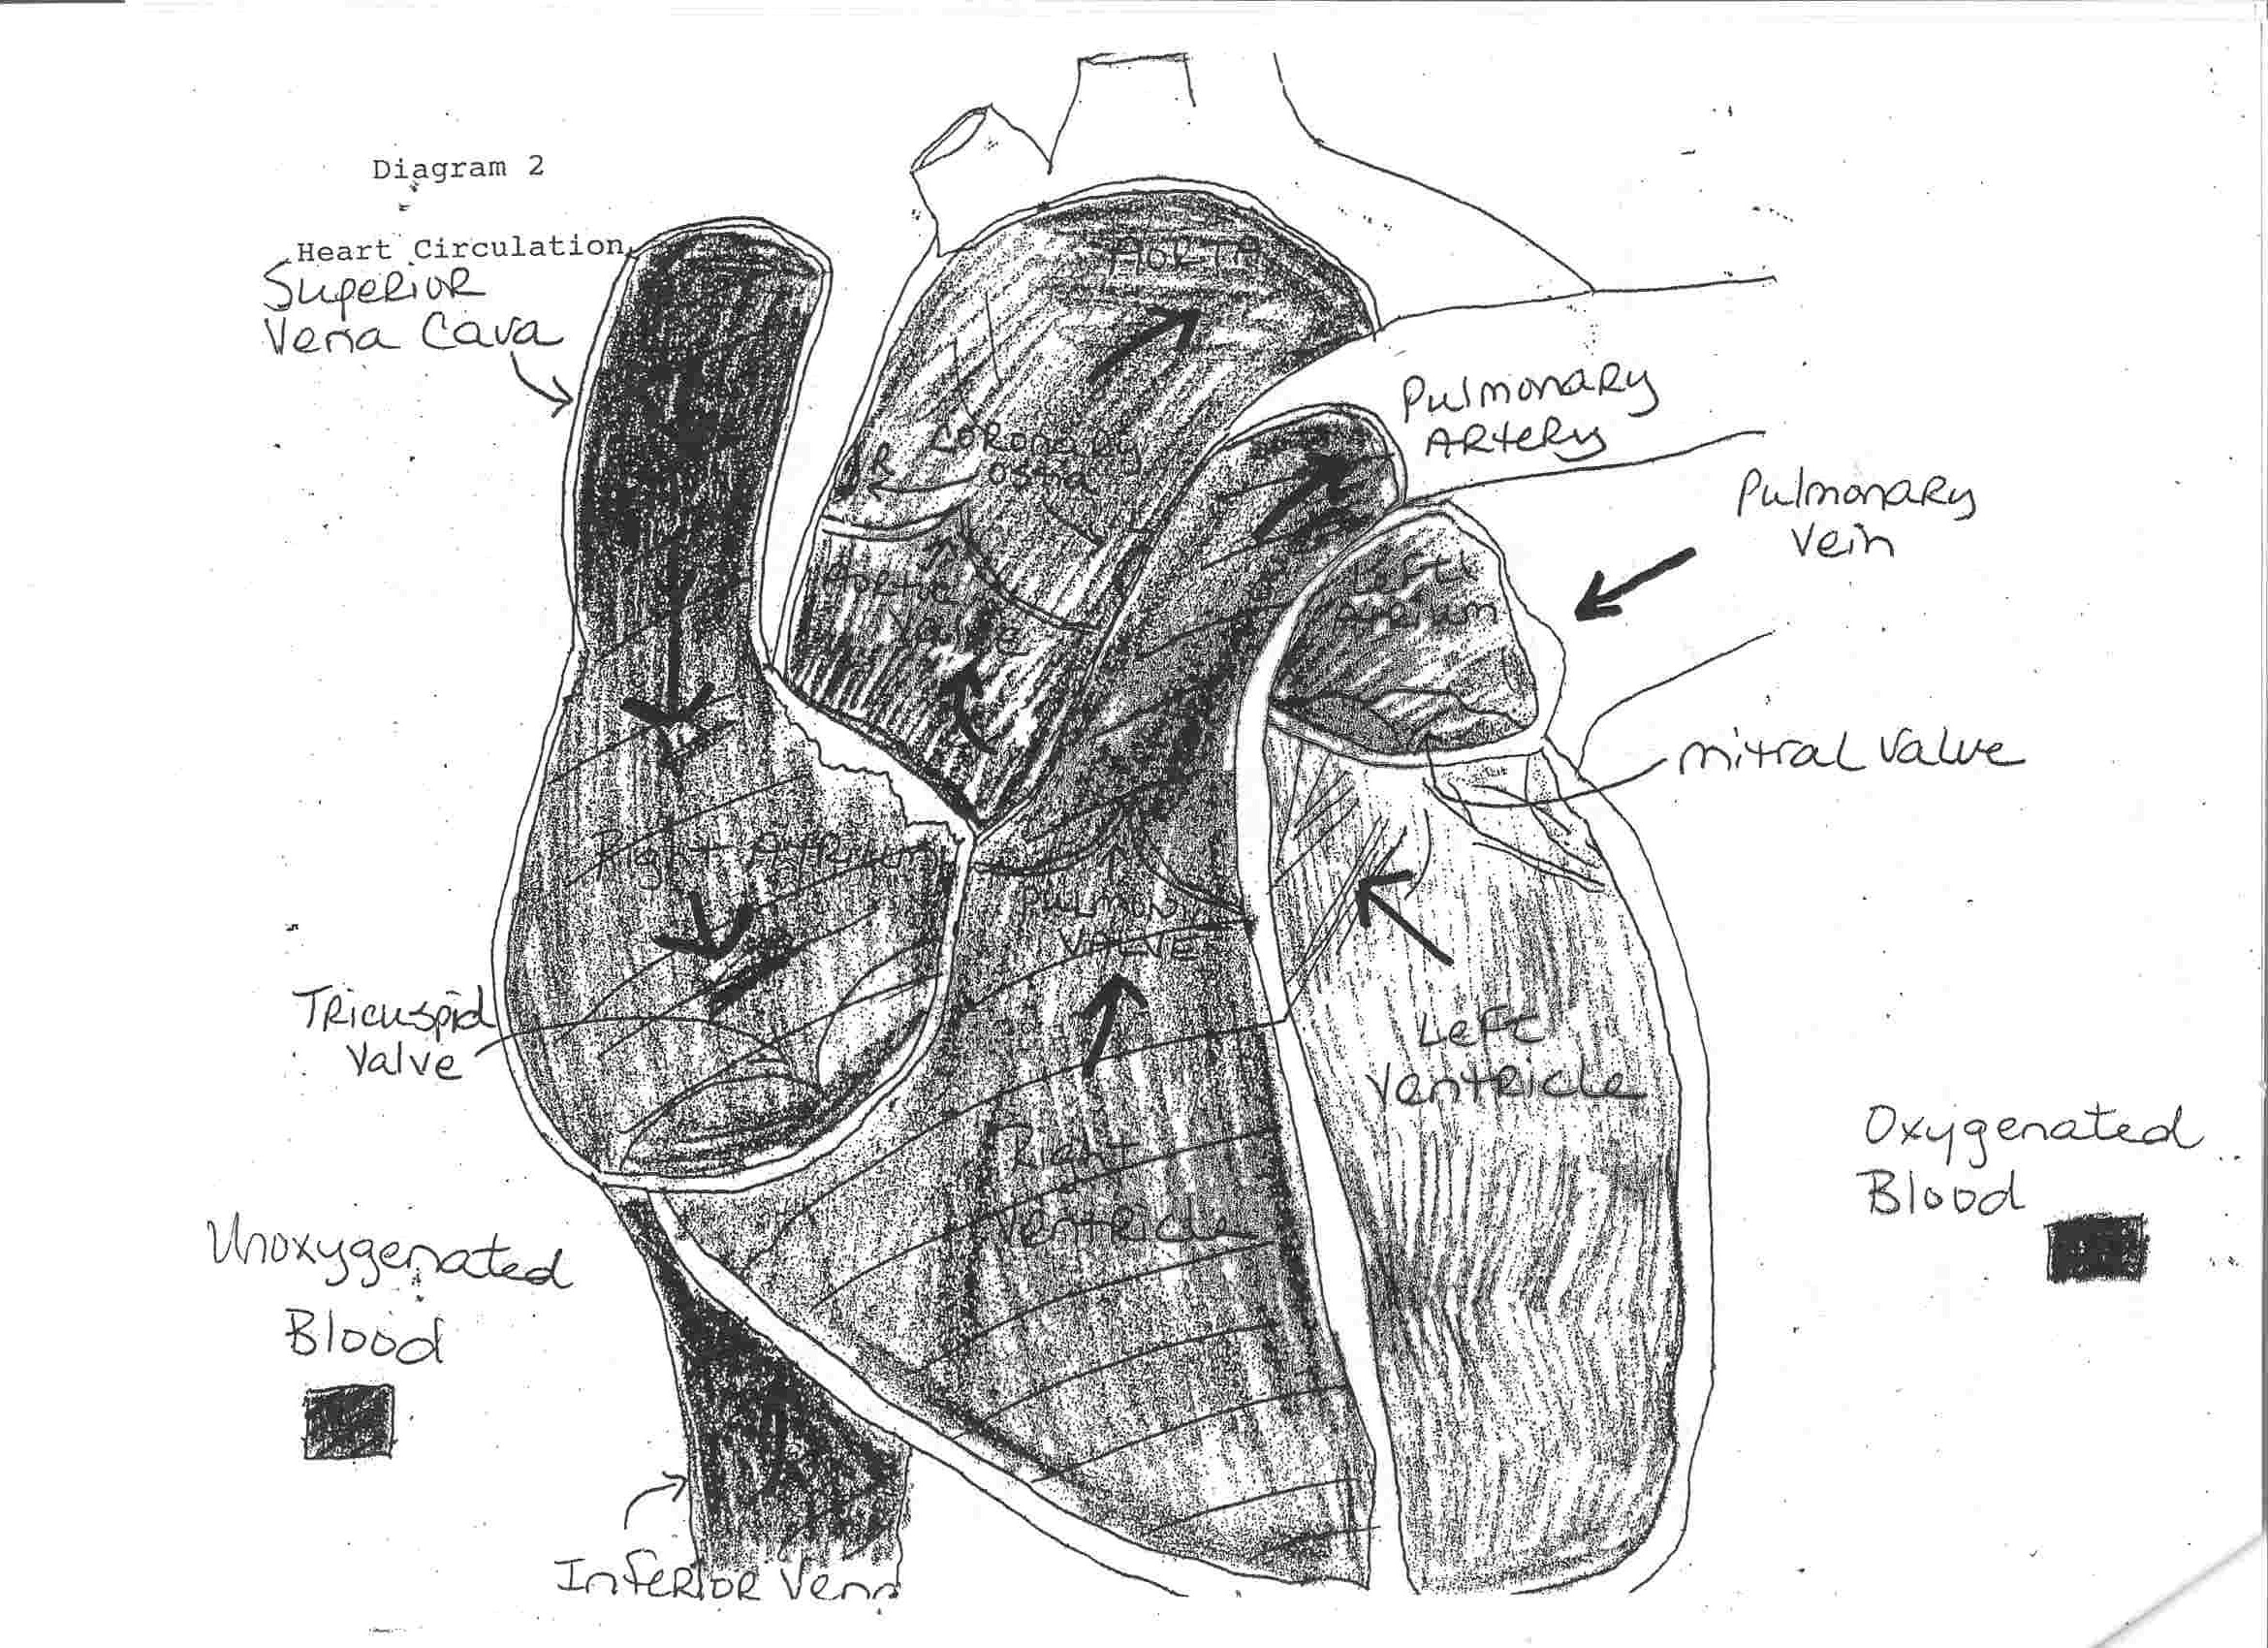 Diagram 2
Heart Circulation
Superior
Vena Cava
AORTA
Pulmonary
Artery
R Coronary
ostia
Pulmonary
Vein
Aortic
Valve
Left
Atrium
mitral valve
Right Atrium
Pulmonary
VALVE
Tricuspid
Valve
Left
Ventricle
Right
Ventricle
Oxygenated
Blood
Unoxygenated
Blood
Inferior Vena